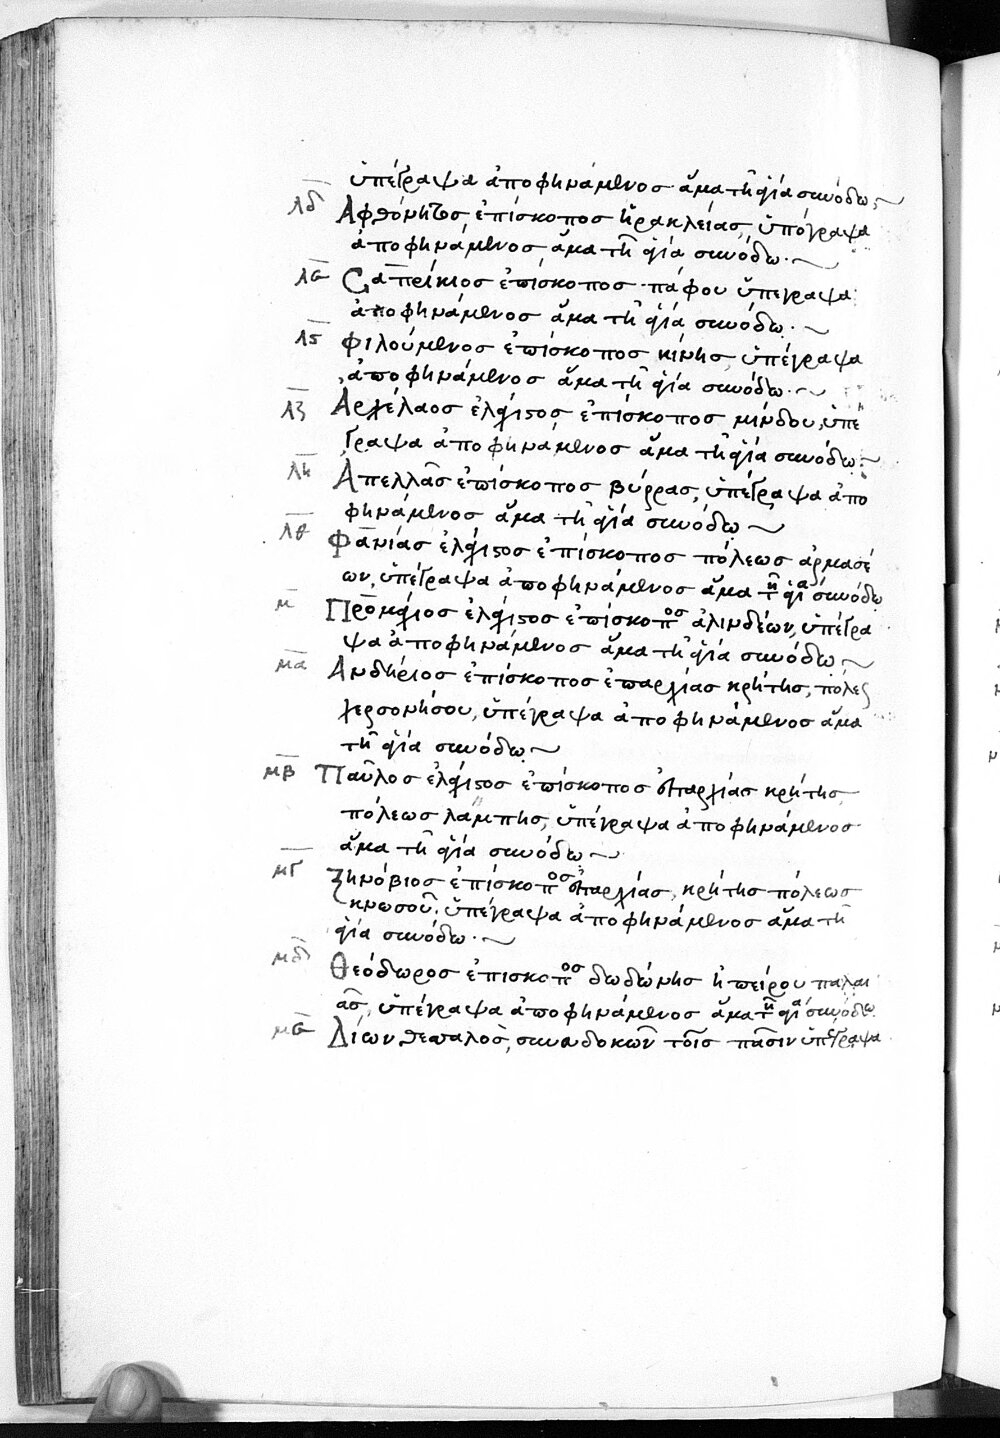 ὑπέγραψα ἀποφηνάμενος ἅμα τῆ ἁγία συνόδω
λδ Ἀφθόνητος ἐπίσκοπος ἡρακλείας, ὑπόγραψα
ἀποφηνάμενος ἅμα τῆ ἁγία συνόδω.
λε Σαπρίκιος ἐπίσκοπος πάφου ὑπέγραψα
ἀποφηνάμενος ἅμα τῆ ἁγία συνόδω.
λς φιλούμενος ἐπίσκοπος κίνης ὑπέγραψα
ἀποφηνάμενος ἅμα τῆ ἁγία συνόδω.
λζ Ἀρχέλαος ἐλάχιστος ἐπίσκοπος μίνδου, ὑπέ
γραψα ἀποφηνάμενος ἅμα τῆ ἁγία συνόδω.
λη Ἀπελλᾶς ἐπίσκοπος βύρρας, ὑπέγραψα ἀπο
φηνάμενος ἅμα τῆ ἁγία συνόδω
λθ Φανίας ἐλάχιστος ἐπίσκοπος πόλεως ἁρμασέ
ων, ὑπέγραψα ἀποφηνάμενος ἅμα τῆ ἁγία συνόδω
μ Προμάχιος ἐλάχιστος ἐπίσκοπος ἀλινδέων, ὑπέγρα
ψα ἀποφηνάμενος ἅμα τῆ ἁγία συνόδω
μα Ἀνδήριος ἐπίσκοπος ἐπαρχίας κρήτης, πόλε
χερσονήσου, ὑπέγραψα ἀποφηνάμενος ἅμα
τῆ ἁγία συνόδω
μβ Παῦλος ἐλάχιστος ἐπίσκοπος ἐπαρχίας κρήτης
πόλεως λάμπης, ὑπέγραψα ἀποφηνάμενος
ἅμα τῆ ἁγία συνόδω
μγ ζηνόβιος ἐπίσκοπος ἐπαρχίας κρήτης πόλεως
κνωσοῦ, ὑπέγραψα ἀποφηνάμενος ἅμα τῆ
ἁγία συνόδω.
μδ Θεόδωρος ἐπίσκοπος δωδώνης ἠπείρου παλαι
ᾶς, ὑπέγραψα ἀποφηνάμενος ἅμα τῆ ἁγία συνόδω
με Δίων συνευδοκῶν τοῖς πᾶσιν ὑπέγραψα